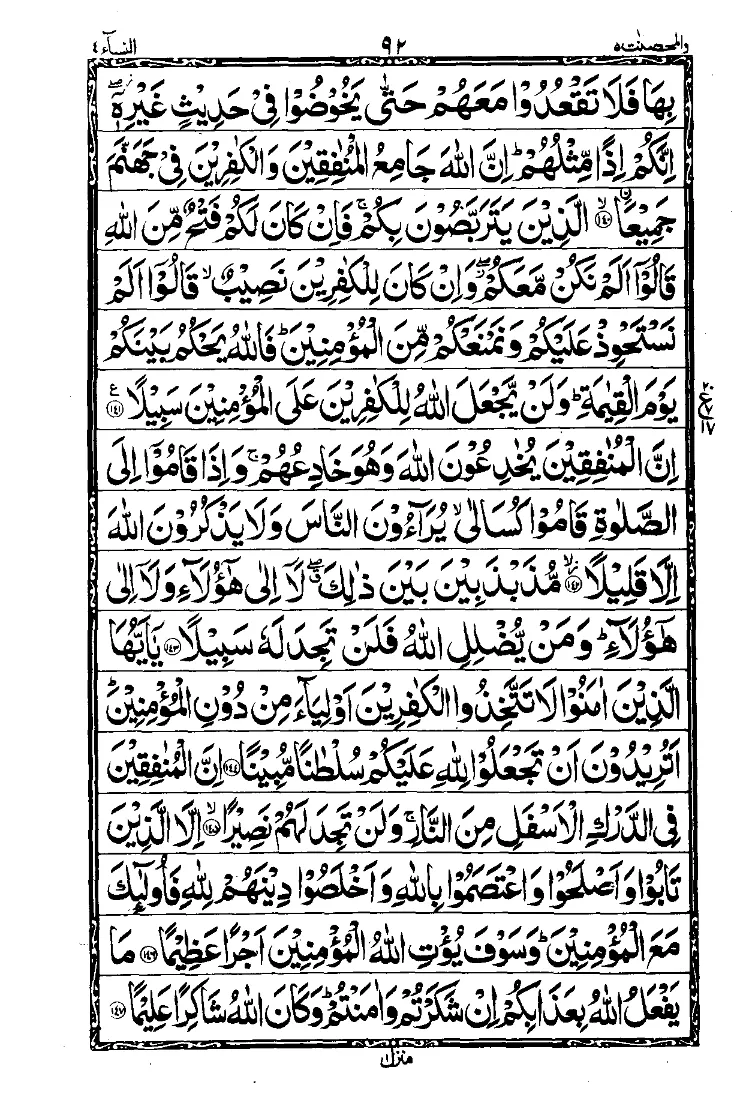 والمحصنت ٥ ٩٢ النسآء ٤
بِهَا فَلَا تَقْعُدُوْا مَعَهُمْ حَتّٰى يَخُوْضُوْا فِيْ حَدِيْثٍ غَيْرِهٖٓ ۖ
اِنَّكُمْ اِذًا مِّثْلُهُمْ ؕ اِنَّ اللّٰهَ جَامِعُ الْمُنٰفِقِيْنَ وَالْكٰفِرِيْنَ فِيْ جَهَنَّمَ
جَمِيْعًا ۙ﴿١٤٠﴾ الَّذِيْنَ يَتَرَبَّصُوْنَ بِكُمْ ۚ فَاِنْ كَانَ لَكُمْ فَتْحٌ مِّنَ اللّٰهِ
قَالُوْٓا اَلَمْ نَكُنْ مَّعَكُمْ ۖ وَاِنْ كَانَ لِلْكٰفِرِيْنَ نَصِيْبٌ ۙ قَالُوْٓا اَلَمْ
نَسْتَحْوِذْ عَلَيْكُمْ وَنَمْنَعْكُمْ مِّنَ الْمُؤْمِنِيْنَ ؕ فَاللّٰهُ يَحْكُمُ بَيْنَكُمْ
يَوْمَ الْقِيٰمَةِ ؕ وَلَنْ يَّجْعَلَ اللّٰهُ لِلْكٰفِرِيْنَ عَلَى الْمُؤْمِنِيْنَ سَبِيْلًا ﴿١٤١﴾ ع
اِنَّ الْمُنٰفِقِيْنَ يُخٰدِعُوْنَ اللّٰهَ وَهُوَ خَادِعُهُمْ ۚ وَاِذَا قَامُوْٓا اِلَى
الصَّلٰوةِ قَامُوْا كُسَالٰى ۙ يُرَآءُوْنَ النَّاسَ وَلَا يَذْكُرُوْنَ اللّٰهَ
اِلَّا قَلِيْلًا ۙ﴿١٤٢﴾ مُّذَبْذَبِيْنَ بَيْنَ ذٰلِكَ ۖ لَآ اِلٰى هٰٓؤُلَآءِ وَلَآ اِلٰى
هٰٓؤُلَآءِ ؕ وَمَنْ يُّضْلِلِ اللّٰهُ فَلَنْ تَجِدَ لَهٗ سَبِيْلًا ﴿١٤٣﴾ يٰٓاَيُّهَا
الَّذِيْنَ اٰمَنُوْا لَا تَتَّخِذُوا الْكٰفِرِيْنَ اَوْلِيَآءَ مِنْ دُوْنِ الْمُؤْمِنِيْنَ ؕ
اَتُرِيْدُوْنَ اَنْ تَجْعَلُوْا لِلّٰهِ عَلَيْكُمْ سُلْطٰنًا مُّبِيْنًا ﴿١٤٤﴾ اِنَّ الْمُنٰفِقِيْنَ
فِي الدَّرْكِ الْاَسْفَلِ مِنَ النَّارِ ۚ وَلَنْ تَجِدَ لَهُمْ نَصِيْرًا ۙ﴿١٤٥﴾ اِلَّا الَّذِيْنَ
تَابُوْا وَاَصْلَحُوْا وَاعْتَصَمُوْا بِاللّٰهِ وَاَخْلَصُوْا دِيْنَهُمْ لِلّٰهِ فَاُولٰٓئِكَ
مَعَ الْمُؤْمِنِيْنَ ؕ وَسَوْفَ يُؤْتِ اللّٰهُ الْمُؤْمِنِيْنَ اَجْرًا عَظِيْمًا ﴿١٤٦﴾ مَا
يَفْعَلُ اللّٰهُ بِعَذَابِكُمْ اِنْ شَكَرْتُمْ وَاٰمَنْتُمْ ؕ وَكَانَ اللّٰهُ شَاكِرًا عَلِيْمًا ﴿١٤٧﴾
منزل ١